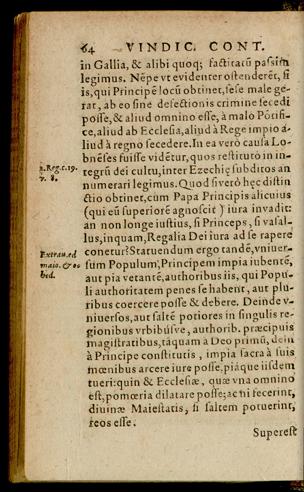 64 VINDIC. CONT.
in Gallia, & alibi quoq; factitatũ passim
legimus. Nẽpe vt euidenter ostenderẽt, si
is, qui Principẽ locũ obtinet, sese male ge-
rat, ab eo sine defectionis crimine secedi
posse, & aliud omnino esse, à malo Põtifi-
ce, aliud ab Ecclesia, aliud à Rege impio a-
liud à regno secedere. In ea verò causa Lo-
bnẽses fuisse vidẽtur, quos restituto in in-
2. Reg. c. 19.
tegrũ dei cultu, inter Ezechię subditos an
v. 8.
numerari legimus. Quod si verò hęc distin
ctio obtinet, cùm Papa Principis alicuius
(qui eũ superiorẽ agnoscit) iura inuadit:
an non longe iustius, si Princeps, si vasal-
lus, inquam, Regalia Dei iura ad se rapere
Extrau. ed
conetur? Statuendum ergo tandẽ, vniuer-
maio. & o-
sum Populum, Principem impia iubentẽ,
bed.
aut pia vetantẽ, authoribus iis, qui Popu-
li authoritatem penes se habent, aut plu-
ribus coercere posse & debere. Deinde v-
niuersos, aut saltẽ potiores in singulis re-
gionibus vrbibúsve, authorib. præcipuis
magistratibus, tãquam à Deo primũ, dein
à Principe constitutis, impia sacra à suis
mœnibus arcere iure posse, piáque iisdem
tueri: quin & Ecclesiæ, quæ vna omnino
est, pomœria dilatare posse; ac ni fecerint,
diuinæ Maiestatis, si saltem potuerint,
reos esse.
Superest